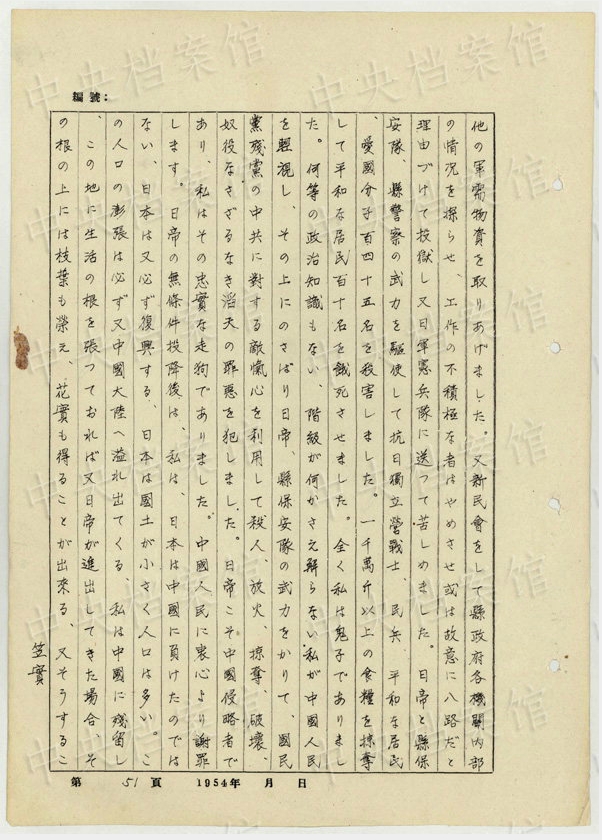 編號:
他の軍需物資を取りあげました。又新民會をして縣政府各機關内部
の情况を探らせ、工作の不積極な者はやめさせ或は故意に八路だと
理由づけて投獄し又日軍憲兵隊に送つて苦しめました。日帝と縣保
安隊、縣警察の武力を駆使して抗日獨立營戰士、民兵、平和な居民
、愛國分子百四十五名を殺害しました。一千萬斤以上の食糧を掠奪
して平和な居民百十名を餓死させました。全く私は鬼子でありまし
た。何等の政治知識もない、階級が何かさえ解らない私が中國人民
を輕視し、その上にのさばり日帝、縣保安隊の武力をかりて、國民
黨殘黨の中共に対する敵愾心を利用して殺人、放火、掠奪、破壞、
奴役なさざるなき滔天の罪惡を犯しました。日帝こそ中國侵略者で
あり、私はその忠實な走狗でありました。中國人民に衷心より謝罪
します。日帝の無條件投降後は、私は、日本は中國に負けたのでは
ない、日本は又必ず復興する、日本は國土が小さく人口は多い。こ
の人口の膨張は必ず又中國大陸へ溢れ出てくる、私は中國に残留し
、この地に生活の根を張つておれば又日帝が進出してきた場合、そ
の根の上には枝葉も榮え、花實も得ることが出來る、又そうするこ
笠實
第 51 頁 1954年 月 日
中央档案馆